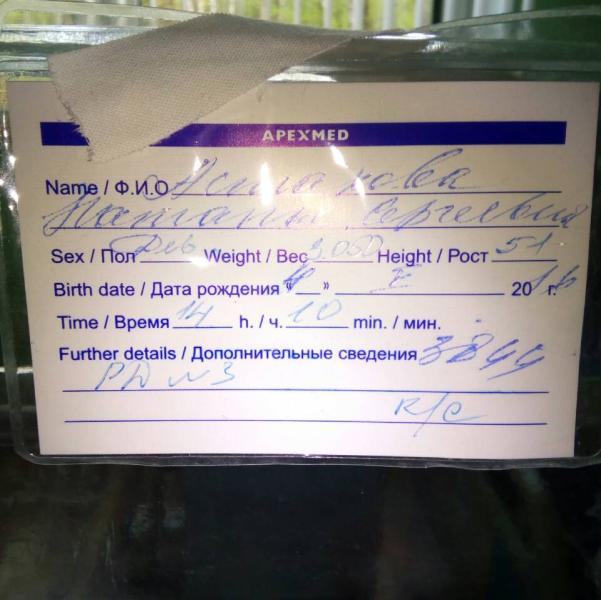 APEXMED
Name / Ф.И.О.
Sex / Пол Дев. Weight / Вес 3.050 Height / Рост 51
Birth date / Дата рождения " " X 20 г.
Time / Время 14 h. / ч. 10 min. / мин.
Further details / Дополнительные сведения 3844
РД №3
к/с